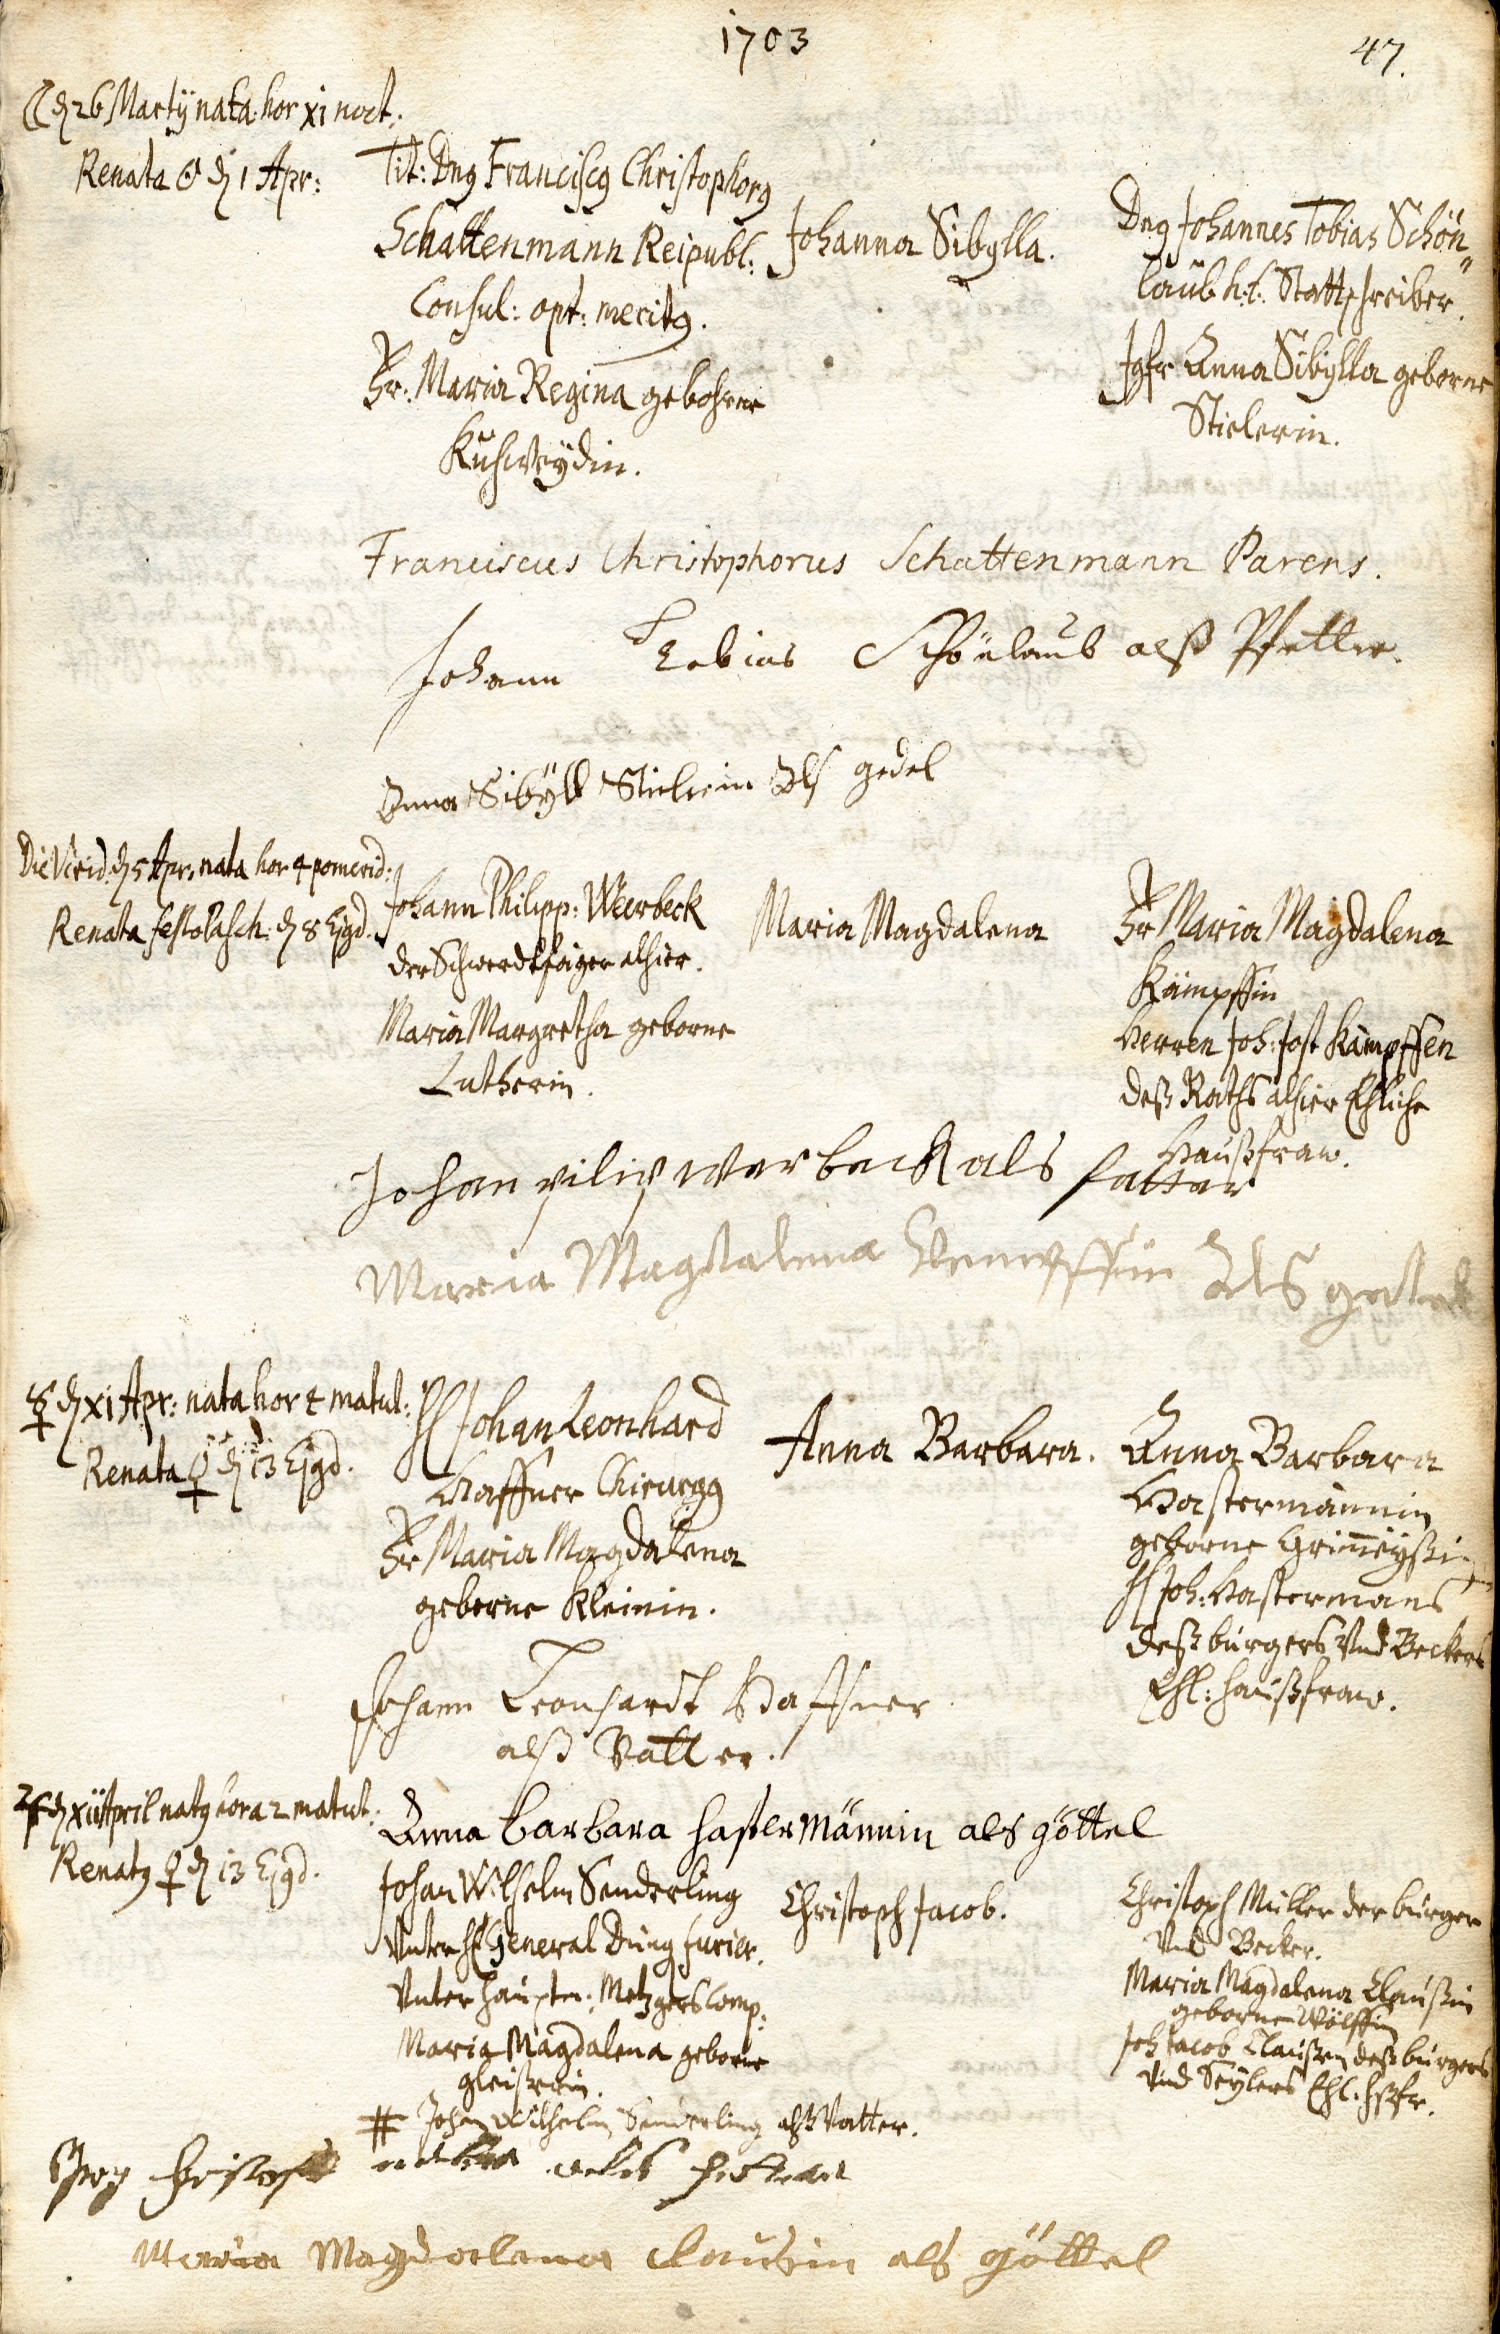 1703
47.
☾ d 26 Martij nata. hor xi noct:
Renata ☉ d 1 Apr:
Tit: Dng Franciscg Christophorg
Schattenmann Reipubl:
Consul: opt: meritg.
Fr: Maria Regina gebohrne
Kühweydin.
Johanna Sibylla.
Dng Johannes Tobias Schön„
laub h. t. Stattschreiber.
Jgfr Anna Sibylla geborne
Stielerin.
Franciscus Christophorus Schattenmann Parens.
Johann Tobias Schönlaub alß Pfetter.
Anna Sibÿll Stielerin Als gedel
Die Virid. d 5 Apr. nata hor 4 pomerid:
Renata festo Pasch: d 8 Ejgd.
Johann Philipp: Weerbeck
der Schwerdtfeiger alhier.
Maria Margretha geborne
Lutherin.
Maria Magdalena
Fr Maria Magdalena
Kämpffin
Herren Joh: Jost Kämpffen
deß Raths alhier Ehliche
Haußfraw.
Johan pilip werbeck als fatter
Maria Magdalena Kempffin Als gettel
☿ d xi Apr: nata hor 4 matut:
Renata ♀ d 13 Ejgd.
H Johan Leonhard
Haffner Chirurgg
Fr Maria Magdalena
geborne Kleinin.
Anna Barbara.
Anna Barbara
Hastermännin
geborne
H Joh: Hastermans
deß burgers Vnd Beckers
Ehl: haußfraw.
Johann Leonhardt Haffner
alß Vatter.
Anna barbara hastermännin als göttel
♃ d xii April natg hora 2 matut.
Renatg ♀ d 13 Ejgd.
Johan Wilhelm Senderling
Vnter H General Düng furier.
Vnter Hauptm: Metzgers Comp:
Maria Magdalena geborne
gleißnerin.
Christoph Jacob.
Christoph Müller der burger
Vnd Becker.
Maria Magdalena Claußin
geborne Wölffin
Joh Jacob Claußen deß burgers
Vnd Seylers Ehl. Hßfr.
# Johan Wilhelm Senderling alß Vatter.
Maria Magdalena Clausin als göttel